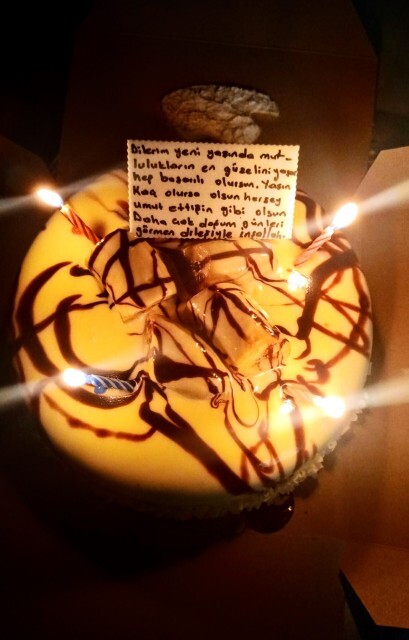 Dilerim yeni yaşında mut-
lulukların en güzelini yaşar
hep başarılı olursun. Yaşın
Kaç olursa olsun herşey
Umut ettiğin gibi olsun
Daha çok doğum günleri
görmen dileğiyle inşallah